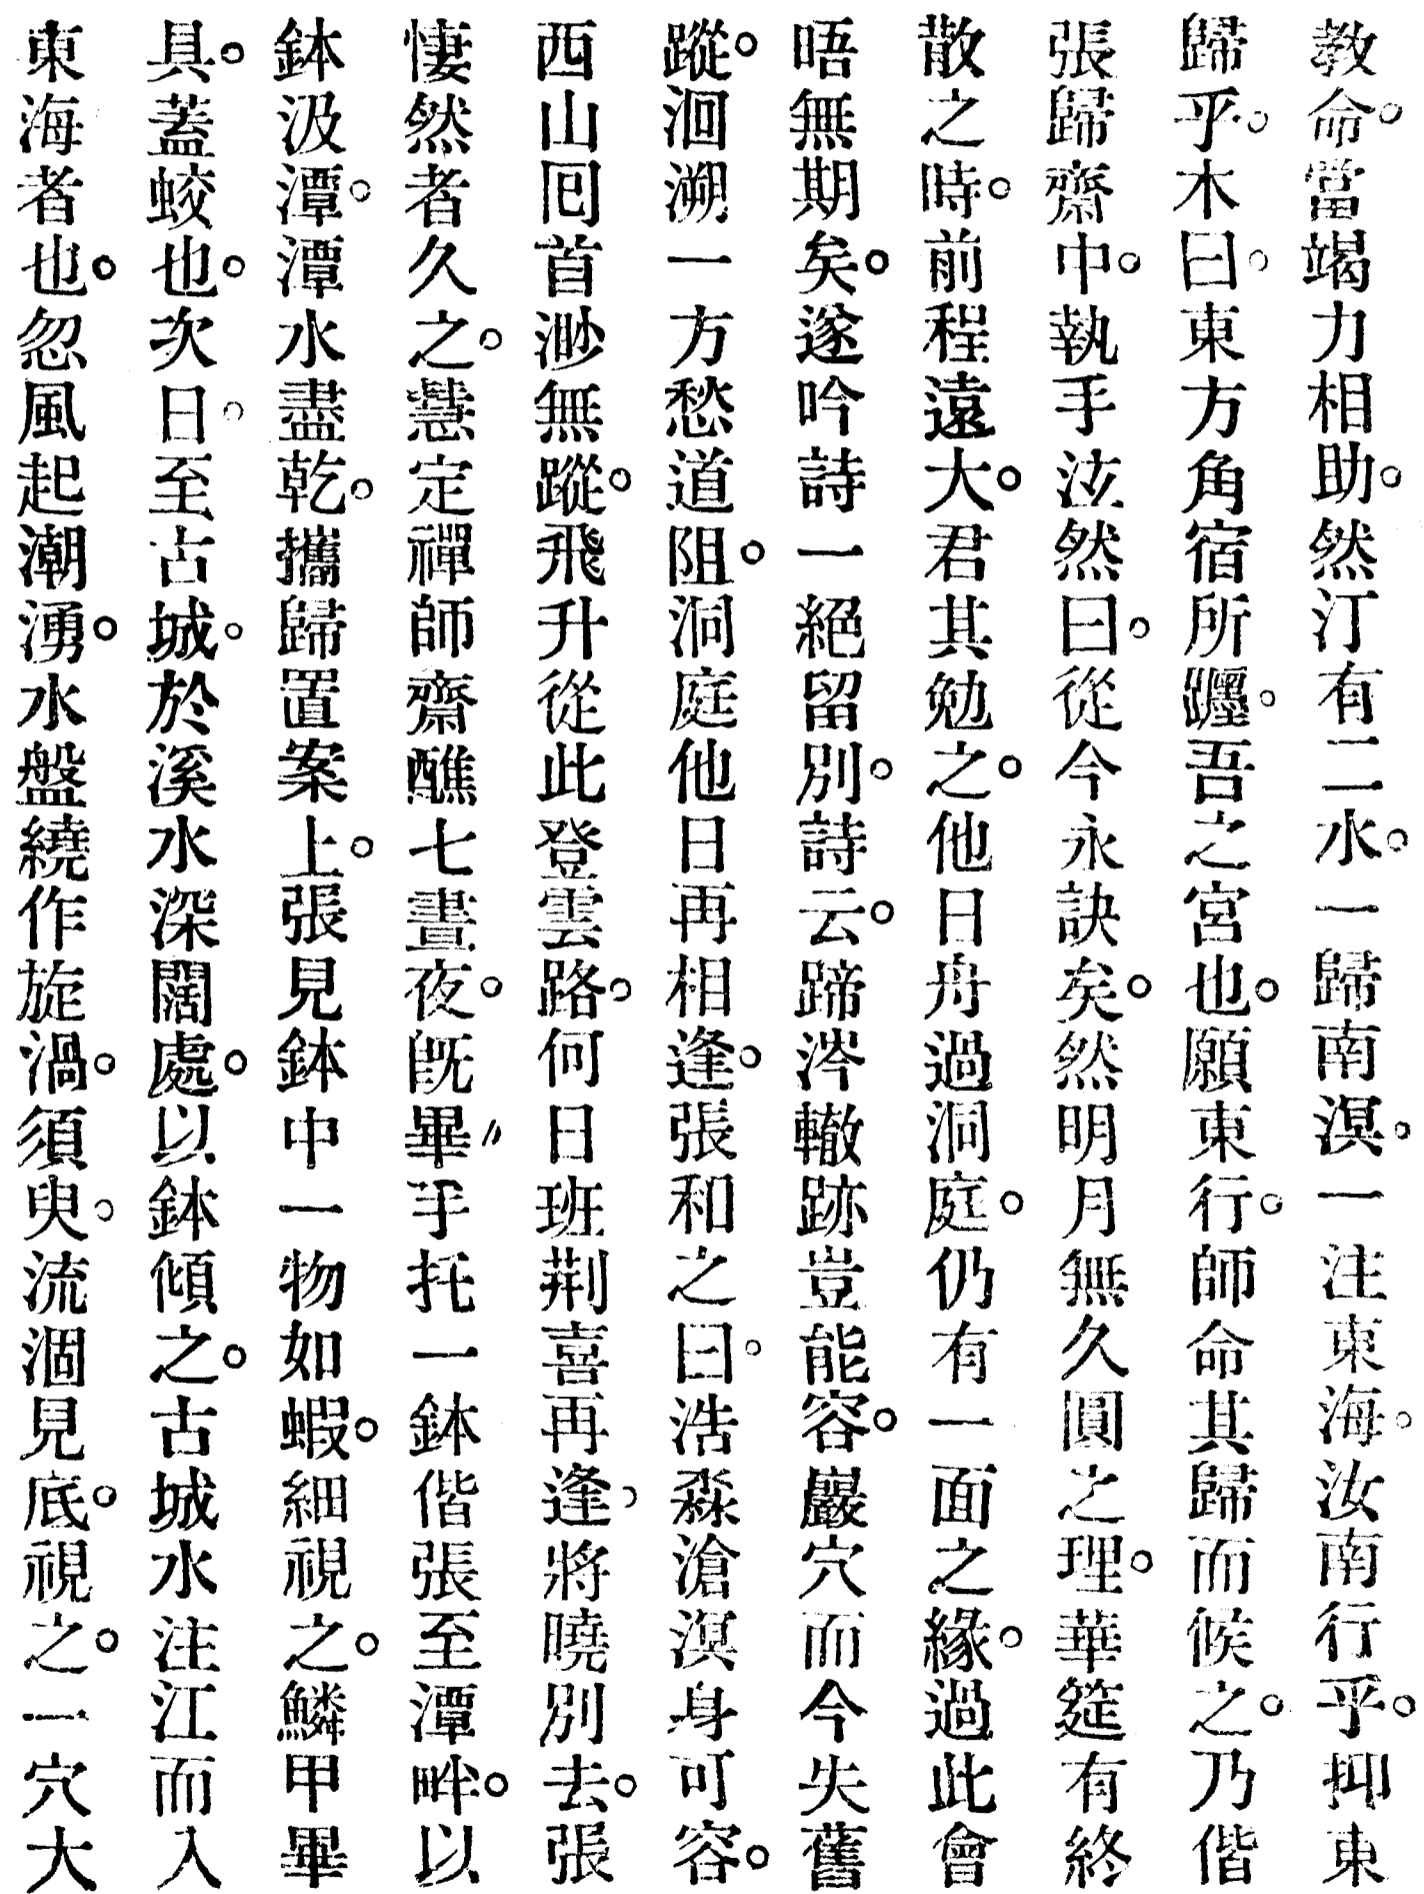 教命。當竭力相助。然汀有二水。一歸南溟。一注東海。汝南行乎。抑東
歸乎。木曰。東方角宿所躔。吾之宮也。願東行。師命其歸而候之。乃偕
張歸齋中。執手泫然曰。從今永訣矣。然明月無久圓之理。華筵有終
散之時。前程遠大。君其勉之。他日舟過洞庭。仍有一面之緣。過此會
唔無期矣。遂吟詩一絕留別。詩云。蹄涔轍跡豈能容。巖穴而今失舊
蹤。洄溯一方愁道阻。洞庭他日再相逢。張和之曰。浩森滄溟身可容。
西山囘首渺無蹤。飛升從此登雲路。何日班荆喜再逢。將曉別去。張
悽然者久之。慧定禪師齋醮七晝夜。旣畢。手托一鉢偕張至潭畔。以
鉢汲潭。潭水盡乾。攜歸置案上。張見鉢中一物如蝦。細視之。鱗甲畢
具。蓋蛟也。次日。至古城。於溪水深闊處。以鉢傾之。古城水注江而入
東海者也。忽風起潮湧。水盤繞作旋渦。須臾。流涸見底。視之。一穴大